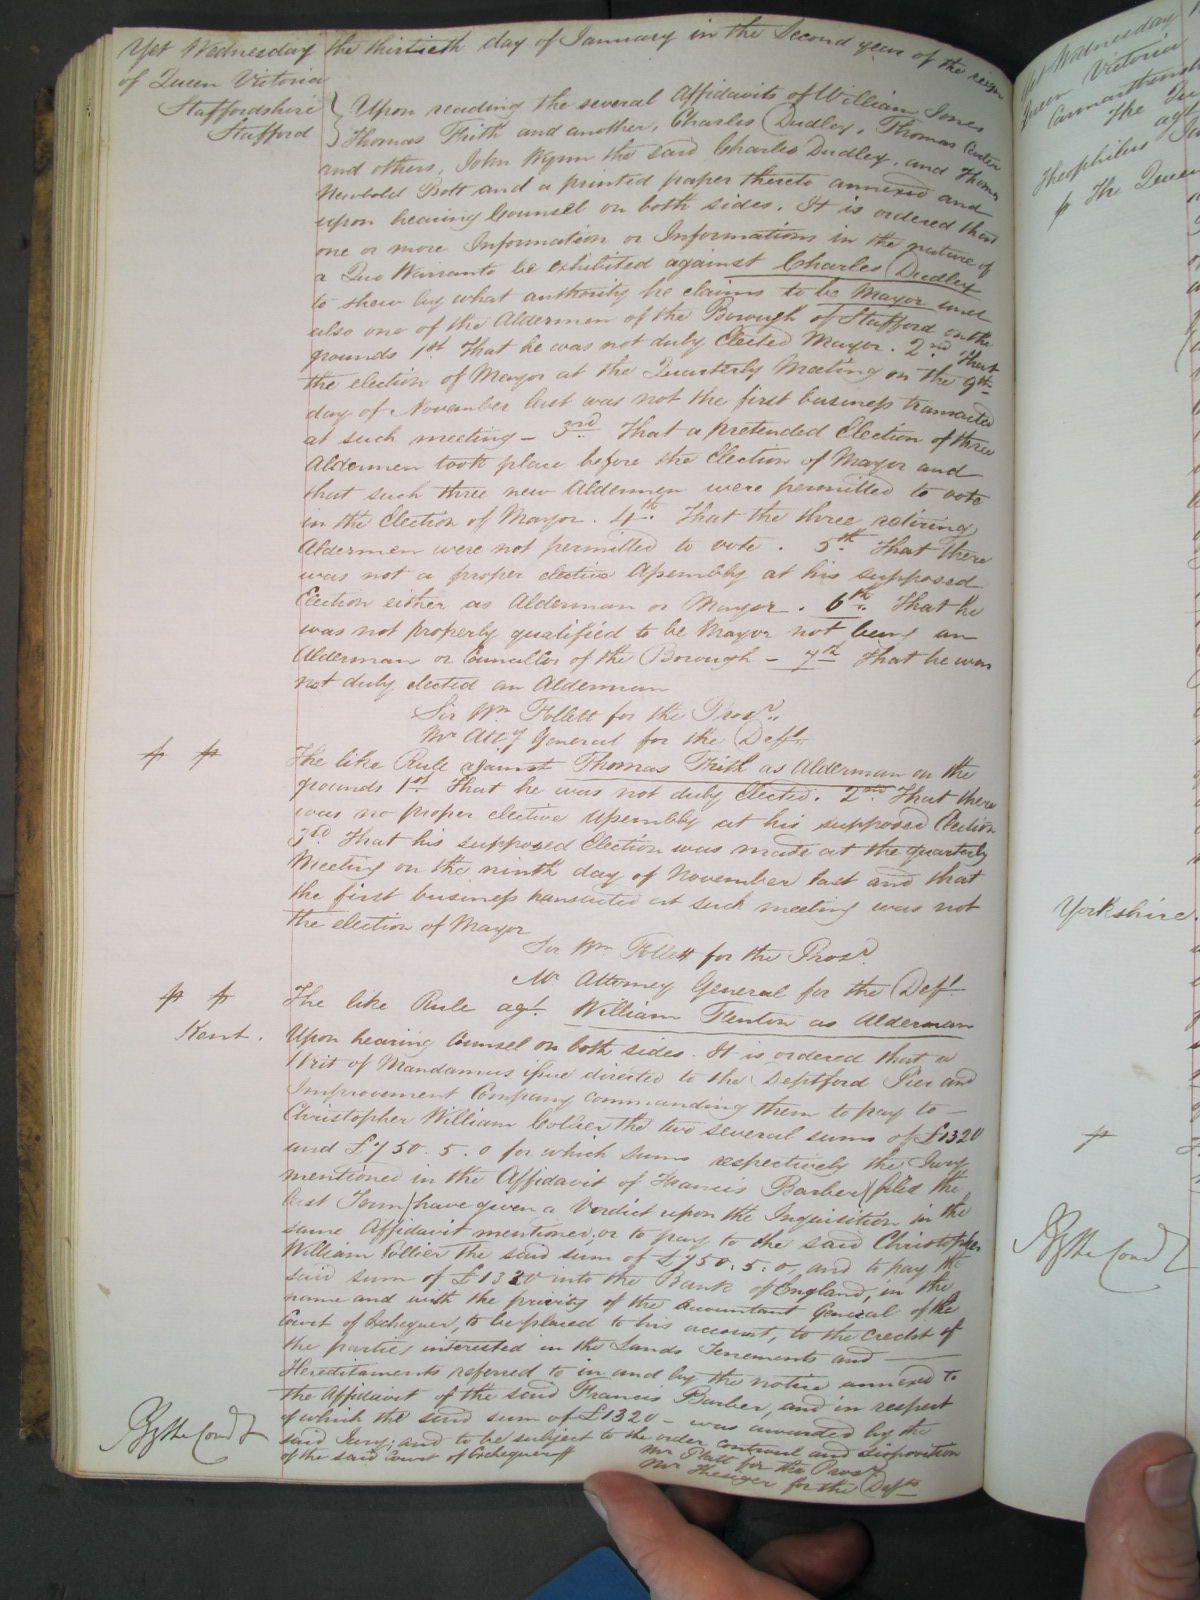 Yet Wednesday the thirtieth day of January in the Second year of the reign
of Queen Victoria
Staffordshire
Stafford
Upon reading the several Affidavits of William Jones
Thomas Frith and another, Charles Dudley, Thomas Carter
and others, John Wynn the said Charles Dudley, and Thomas
Newbold Brott and a printed paper thereto annexed and
upon hearing Counsel on both sides. It is ordered that
one or more Information or Informations in the nature of
a Quo Warranto be exhibited against Charles Dudley
to shew by what authority he claims to be Mayor and
also one of the Aldermen of the Borough of Stafford on the
grounds 1st That he was not duly Elected Mayor. 2nd That
the election of Mayor at the Quarterly Meeting on the 9th
day of November last was not the first business transacted
at such meeting - 3rd That a pretended Election of three
Aldermen took place before the Election of Mayor and
that such three new Aldermen were permitted to vote
in the Election of Mayor. 4th That the three retiring
Aldermen were not permitted to vote. 5th That there
was not a proper elective Assembly at his supposed
Election either as Alderman or Mayor. 6th That he
was not properly qualified to be Mayor not being an
Alderman or Councillor of the Borough - 7th That he was
not duly elected an Alderman
Sir Wm Follett for the Prosr
Mr Atty General for the Deft
The like Rule against Thomas Frith as Alderman on the
grounds 1st That he was not duly Elected. 2nd That there
was no proper elective Assembly at his supposed Election
3rd That his supposed Election was made at the quarterly
Meeting on the ninth day of November last and that
the first business transacted at such meeting was not
the election of Mayor
Sir Wm Follett for the Prosr
Mr Attorney General for the Deft
The like Rule agt William Fenton as Alderman
Kent.
Upon hearing Counsel on both sides. It is ordered that a
Writ of Mandamus issue directed to the Deptford Pier and
Improvement Company commanding them to pay to -
Christopher William Collier the two several sums of £1320
and £750.5.0 for which sums respectively the Jury
mentioned in the Affidavit of Francis Barber (filed the
last Term) have given a Verdict upon the Inquisition in the
same Affidavit mentioned; or to pay to the said Christopher
William Collier the said sum of £750:5:0, and to pay the
said sum of £1320 into the Bank of England, in the
name and with the privity of the Accountant General of the
Court of Exchequer, to be placed to his account, to the credit of
the parties interested in the Lands Tenements and
Hereditaments referred to in and by the notice annexed to
the Affidavit of the said Francis Barber, and in respect
of which the said sum of £1320 - was awarded by the
said Jury; and to be subject to the order controul and disposition
of the said Court of Exchequer
Mr Platt for the Prosr
Mr Thesiger for the Defts
By the Court
Yet Wednesday
Queen Victoria
Carmarthensh
The Qu
Theophilus
The Queen
Yorkshire.
By the Court